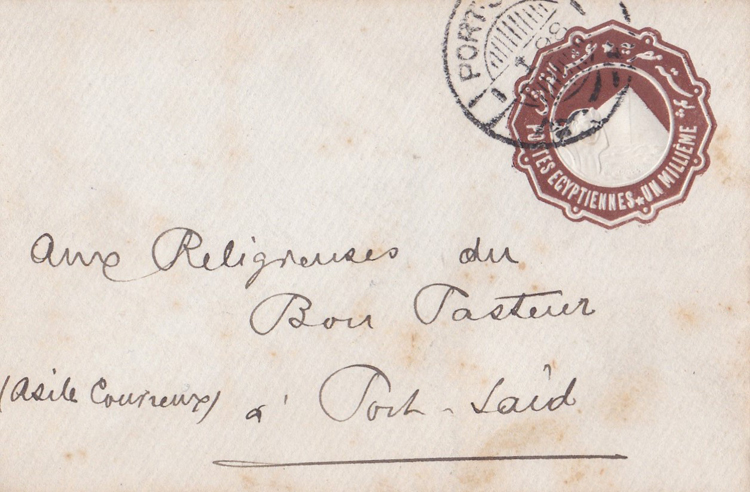 PORT-S
98
POSTES EGYPTIENNES ★ UN MILLIÈME
Aux Religieuses du
Bon Pasteur
(Asile Couvreux) à Port-Saïd